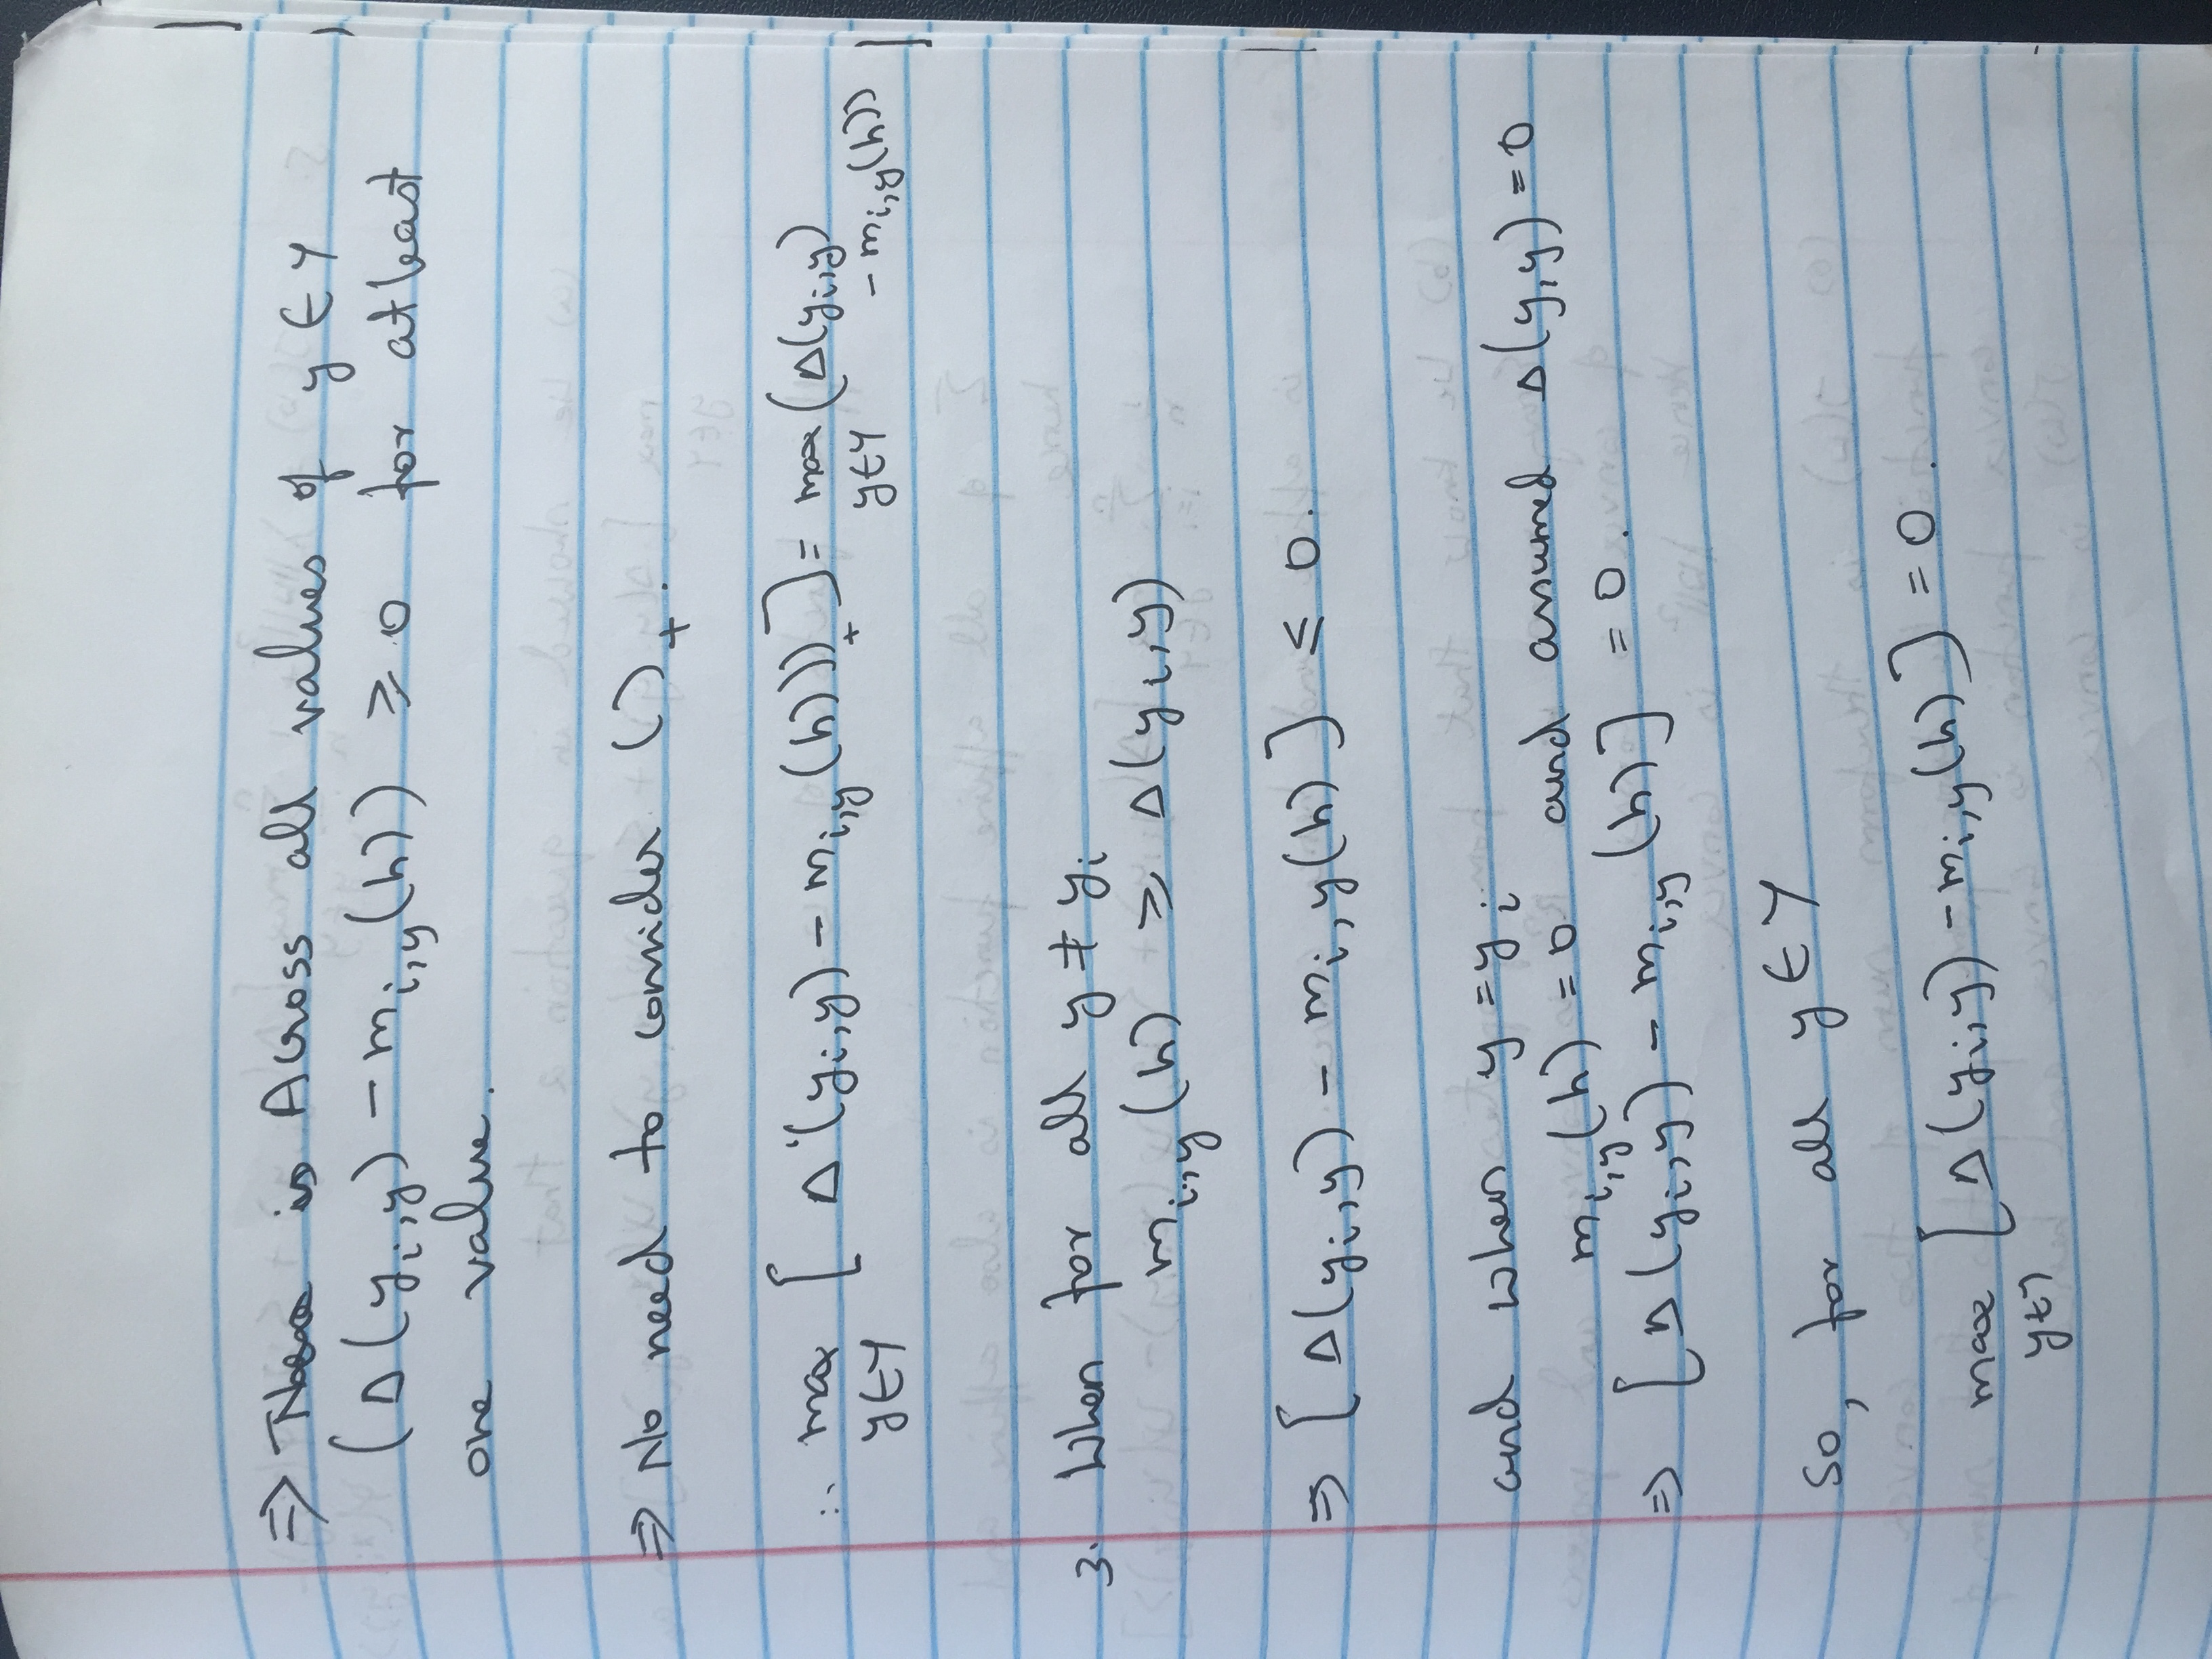 ⇒ There is Across all values of y ∈ Y
(Δ(yi,y) - mi,y(h)) ≥ 0 for atleast
one value.
⇒ No need to consider ()+.
∴ max y∈Y [ Δ'(yi,y) - mi,y(h)))+ ] = max y∈Y (Δ(yi,y)
- mi,y(h))
3. When for all y ≠ yi
mi,y(h) ≥ Δ(yi,y)
⇒ [Δ(yi,y) - mi,y(h)] ≤ 0.
and when y = yi
mi,y(h) = 0 and assumed Δ(y,y) = 0
⇒ [Δ(yi,y) - mi,y(h)] = 0.
So, for all y ∈ Y
max y∈Y [Δ(yi,y) - mi,y(h)] = 0.